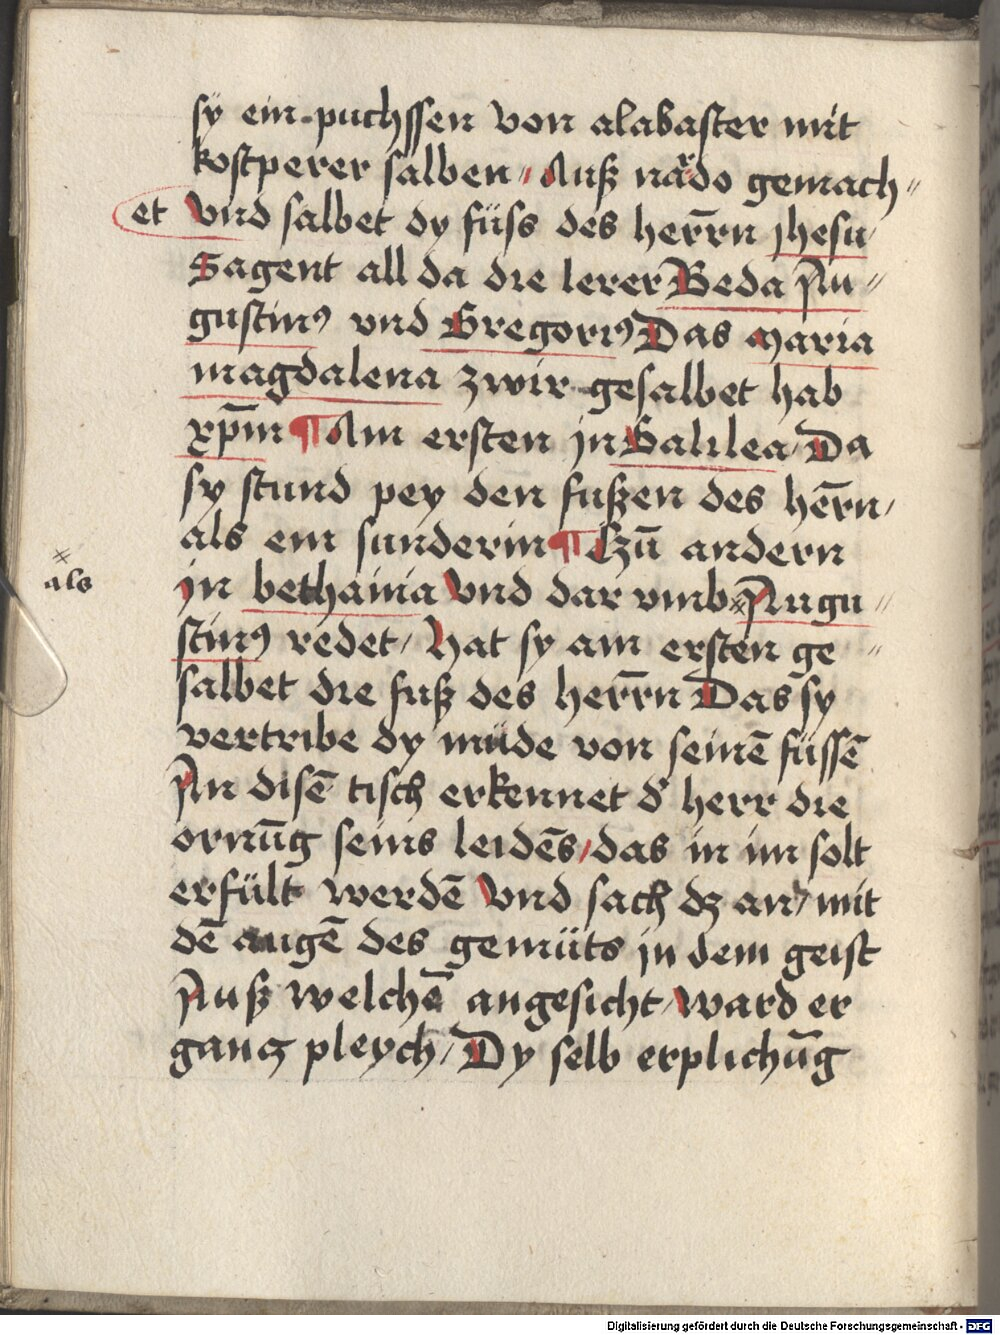 sÿ ein puchssen von alabaster mit
kostperer salben / Auß nardo gemach〃
et vnd salbet dy füss des herr̄n jhesu
Sagent all da die lerer Beda Au〃
gustinꝰ vnd Gregoriꝰ Das Maria
magdalena zwir gesalbet hab
xp̄m ¶ Am ersten jn Galilea / Da
sy stund pey den fußen des her̄n /
als ein sunderin ¶ Czū andern
jn bethania Vnd dar vmb × Augu〃
stinꝰ redet / Hat sy am ersten ge〃
salbet die fuß des herr̄n Das sy
vertribe dy müde von seinē füssē
An disē tisch erkennet d' herr die
ornūg seins leidēs / das in im solt
erfült werdē Vnd sach dz an / mit
dē augē des gemüts jn dem geist
Auß welchē angesicht / ward er
gancz pleych / Dy selb erplichūg
×
als
Digitalisierung gefördert durch die Deutsche Forschungsgemeinschaft - DFG